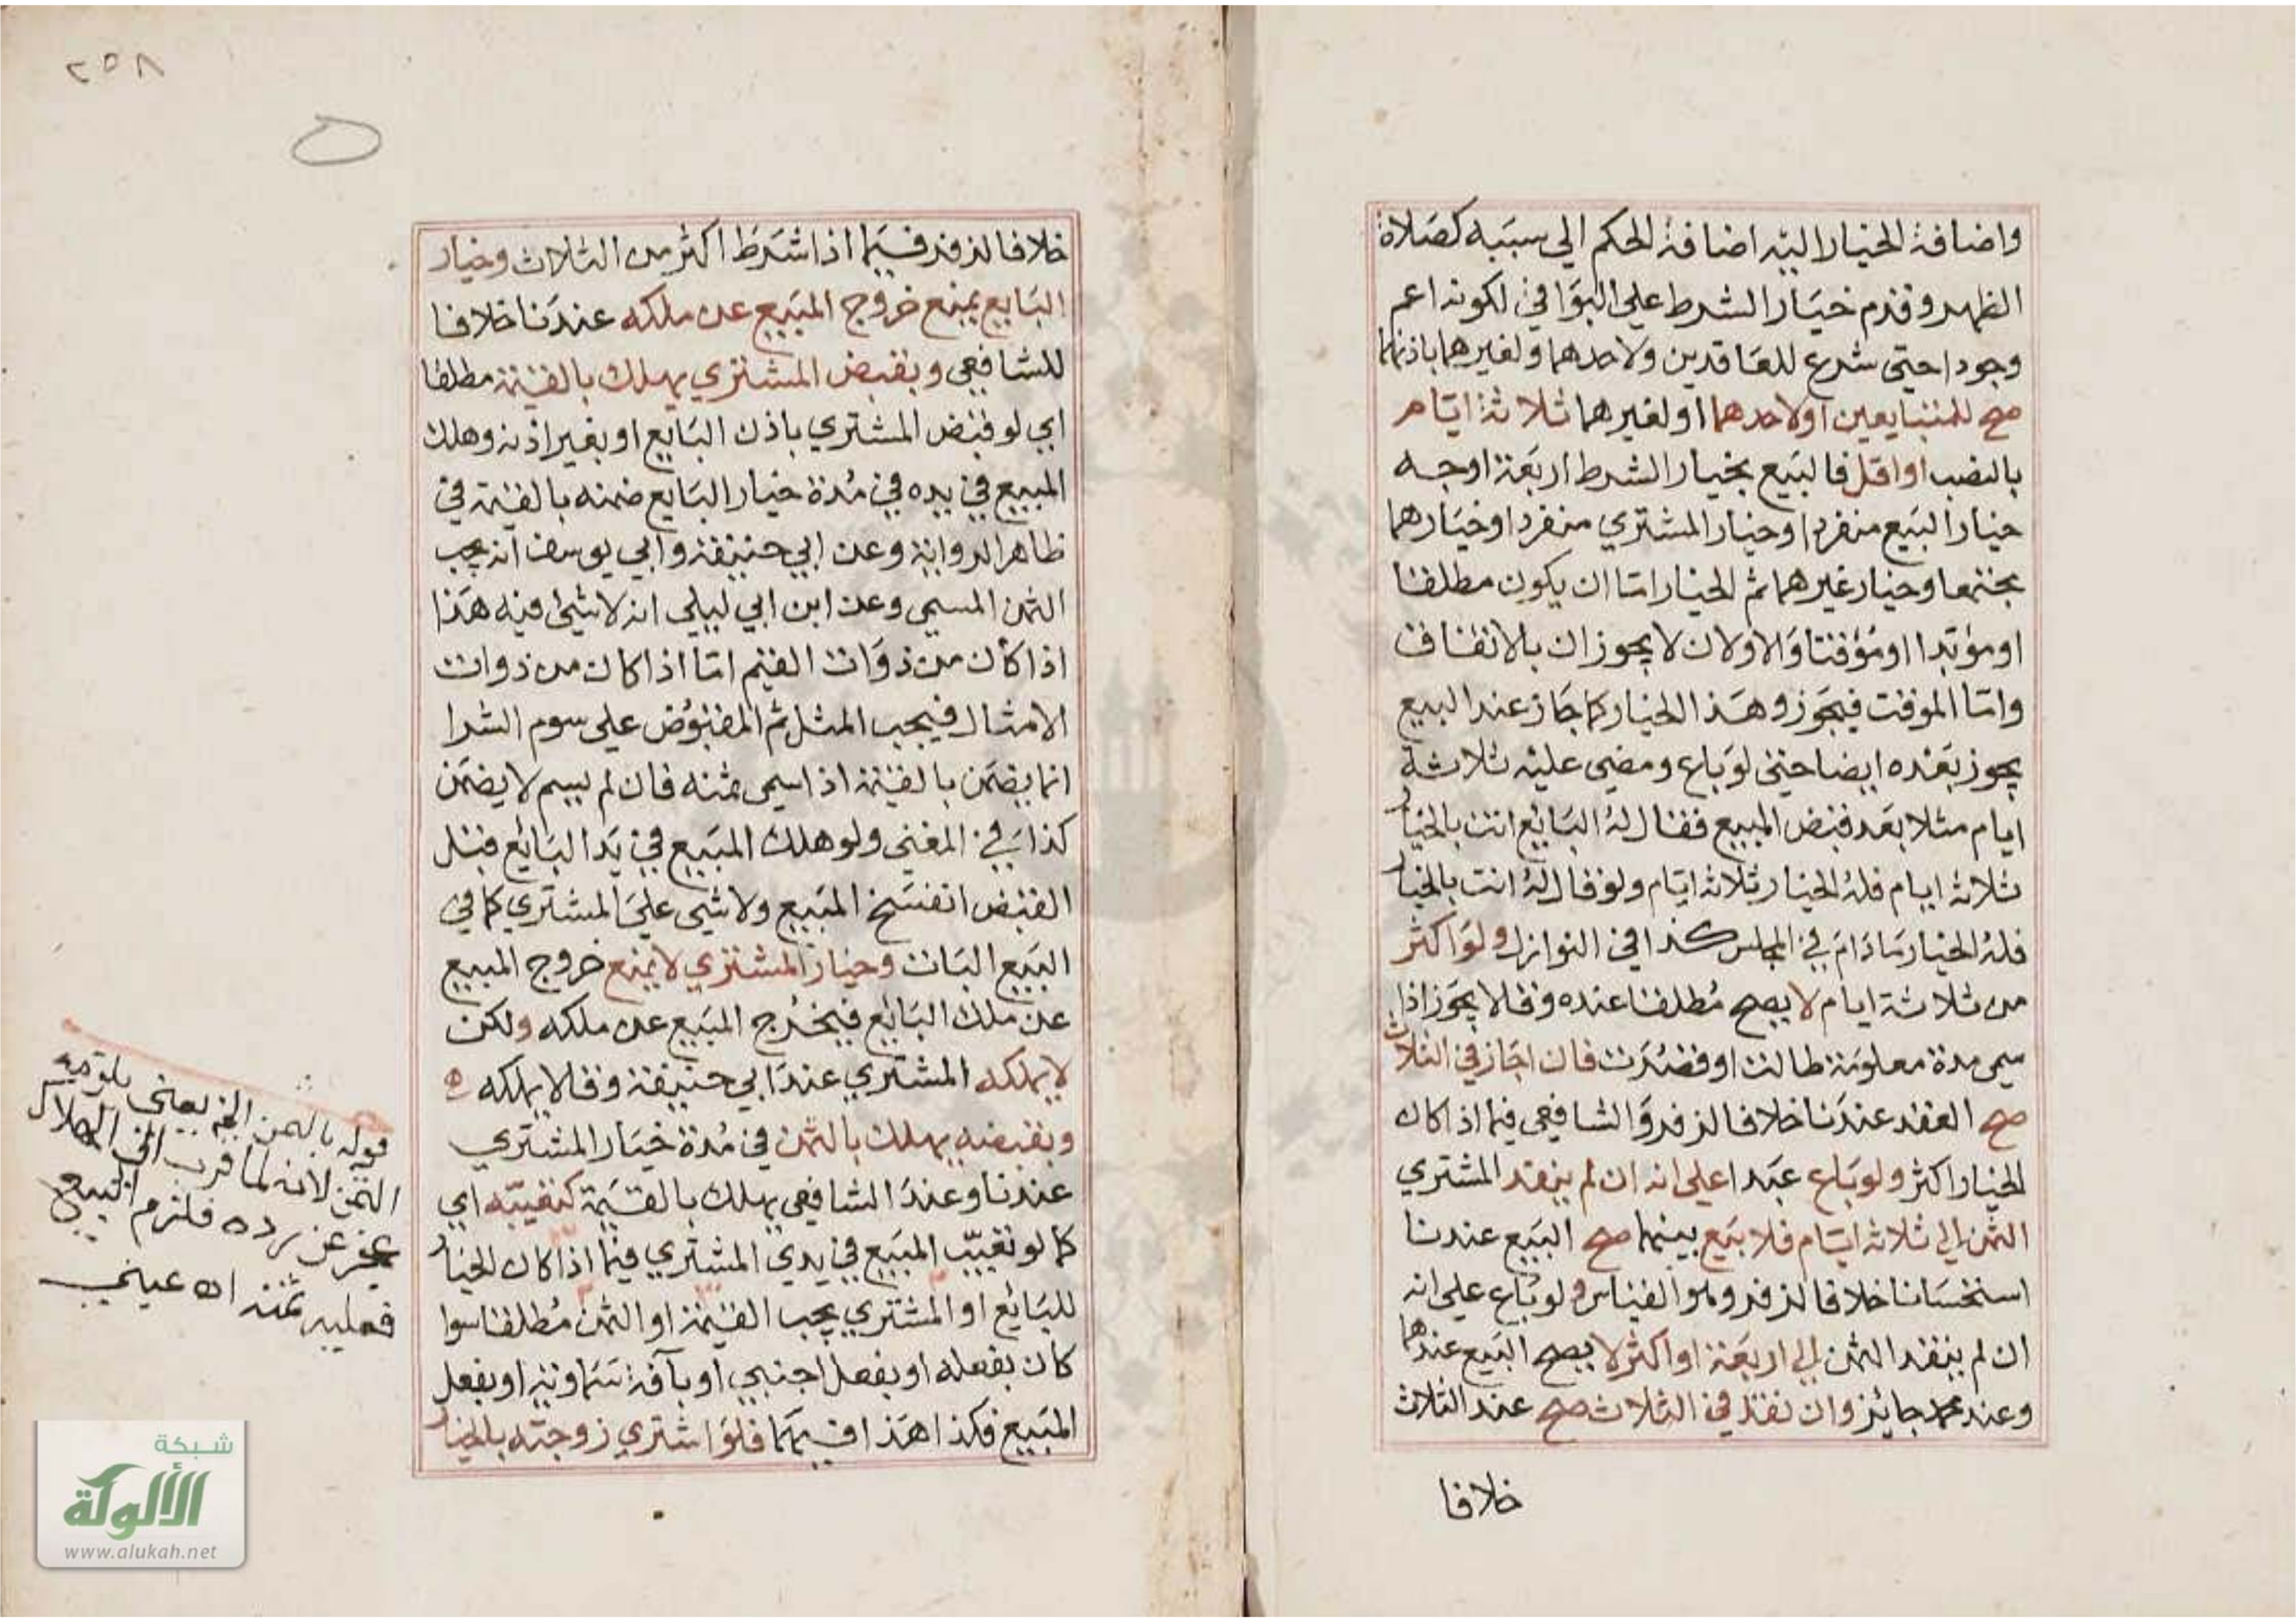 واضافة الخيار اليه اضافة الحكم الي سببه كصلاة
الظهر وقدم خيار الشرط علي البواقي لكونه اعم
وجودا حتي شرع للعاقدين ولاحدهما ولغيرهما باذنهما
صح للمتبايعين او لاحدهما او لغيرهما ثلاثة ايام
بالنصب او اقل فالبيع بخيار الشرط اربعة اوجه
خيار البيع منفردا وخيار المشتري منفردا وخيارهما
مجتمعا وخيار غيرهما ثم الخيار اما ان يكون مطلقا
او مؤبدا او مؤقتا والاولان لا يجوزان بالاتفاق
واما الموقت فيجوز وهذا الخيار كما جاز عند البيع
يجوز بعده ايضا حتي لو باع ومضي عليه ثلاثة
ايام مثلا بعد قبض المبيع فقال له البايع انت بالخيار
ثلاثة ايام فله الخيار ثلاثة ايام ولو قال له انت بالخيار
فله الخيار ما دام في المجلس كذا في النوازل ولو اكثر
من ثلاثة ايام لا يصح مطلقا عنده وقالا يجوز اذا
سمي مدة معلومة طالت او قصرت فان اجاز في الثلاث
صح العقد عندنا خلافا لزفر والشافعي فيما اذا كان
الخيار اكثر ولو باع عبدا علي انه ان لم ينقد المشتري
الثمن الي ثلاثة ايام فلا بيع بينهما صح البيع عندنا
استحسانا خلافا لزفر وهو القياس ولو باع علي انه
ان لم ينقد الثمن الي اربعة او اكثر لا يصح البيع عندهما
وعند محمد جائز وان نقد في الثلاث صح عند الثلاث
خلافا
٢٥٨
خلافا لزفر فيما اذا شرط اكثر من الثلاث وخيار
البايع يمنع خروج المبيع عن ملكه عندنا خلافا
للشافعي وبقبض المشتري يهلك بالقيمة مطلقا
اي لو قبض المشتري باذن البايع او بغير اذنه وهلك
المبيع في يده في مدة خيار البايع ضمنه بالقيمة في
ظاهر الرواية وعن ابي حنيفة وابي يوسف انه يجب
الثمن المسمي وعن ابن ابي ليلي انه لا شيئ فيه هذا
اذا كان من ذوات القيم اما اذا كان من ذوات
الامثال فيجب المثل ثم المقبوض علي سوم الشرا
انما يضمن بالقيمة اذا سمي ثمنه فان لم يسم لا يضمن
كذا في المغني ولو هلك المبيع في يد البايع قبل
القبض انفسخ المبيع ولا شي علي المشتري كما في
البيع البات وخيار المشتري لا يمنع خروج المبيع
عن ملك البائع فيخرج المبيع عن ملكه ولكن
لا يملكه المشتري عند ابي حنيفة وقالا يملكه
وبقبضه يهلك بالثمن في مدة خيار المشتري
عندنا وعند الشافعي يهلك بالقيمة كتعيبه اي
كما لو تعيب المبيع في يدي المشتري فيما اذا كان الخيار
للبائع او المشتري يجب القيمة او الثمن مطلقا سوا
كان بفعله او بفعل اجنبي او بآفة سماوية او بفعل
المبيع فكذا هذا فيهما فلو اشتري زوجته بالخيار
قوله بالثمن الخ يعني يلزمه
الثمن لانه لما قرب الي الهلاك
عجز عن رده فلزم البيع
فعليه ثمنه اه عيني
شبكة
الألوكة
www.alukah.net